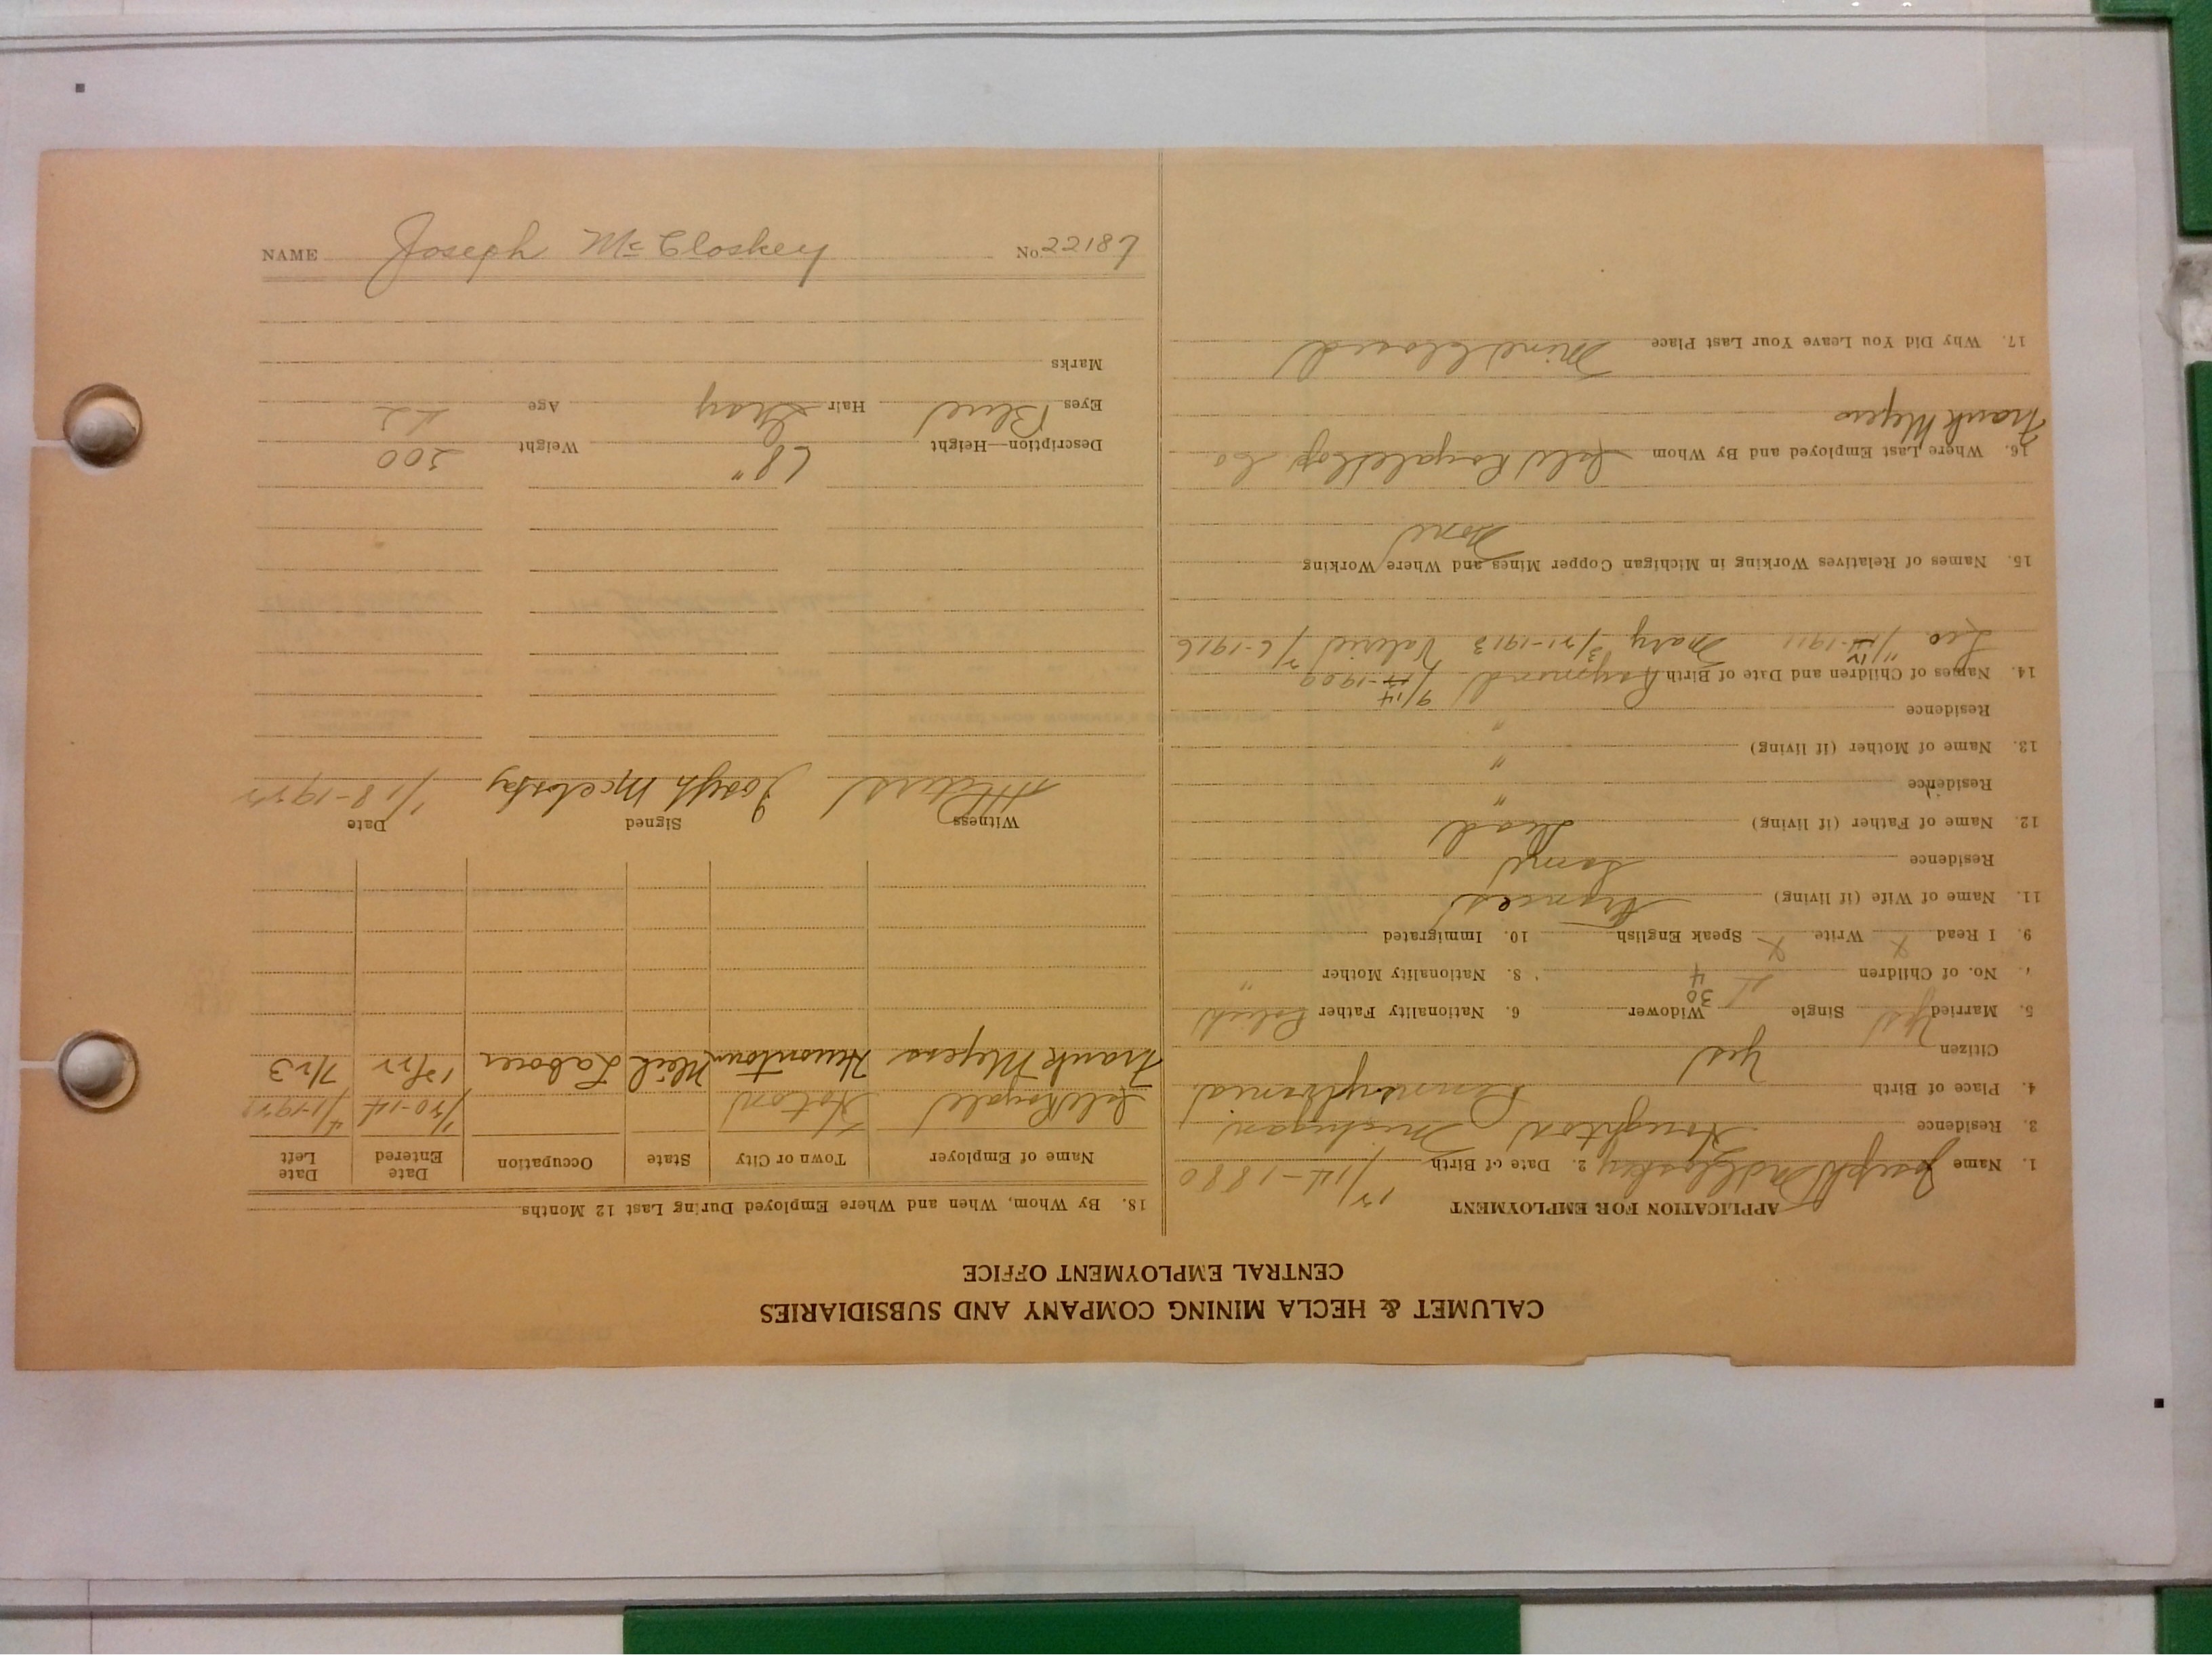 CALUMET & HECLA MINING COMPANY AND SUBSIDIARIES
CENTRAL EMPLOYMENT OFFICE
APPLICATION FOR EMPLOYMENT
1. Name Joseph McCloskey 2. Date of Birth 12/14-1880
3. Residence Houghton Michigan
4. Place of Birth Pennsylvania
Citizen Yes
5. Married Yes Single Widower 30 6. Nationality Father Polish
7. No. of Children 4 8. Nationality Mother "
9. I Read X Write X Speak English 10. Immigrated
11. Name of Wife (if living) Frances
Residence Same
12. Name of Father (if living) Dead
Residence "
13. Name of Mother (if living) "
Residence "
14. Names of Children and Date of Birth Raymond 9/14-1909
Leo 11/12-1911 Mary 3/21-1913 Valerie 2/6-1916
15. Names of Relatives Working in Michigan Copper Mines and Where Working
None
16. Where Last Employed and By Whom Isle Royale Cop Co
Frank Meyers
17. Why Did You Leave Your Last Place Mine Closed
18. By Whom, When and Where Employed During Last 12 Months
Name of Employer Town or City State Occupation Date Entered Date Left
Isle Royale Hoton 1/20-14 4/1-1921
Frank Meyers Hurontown Mich Laborer 12/22 7/23
Witness Signed Date
Joseph McCloskey 1/18-1922
Description—Height 68" Weight 200
Eyes Blue Hair Gray Age 42
Marks
NAME Joseph McCloskey No. 22187